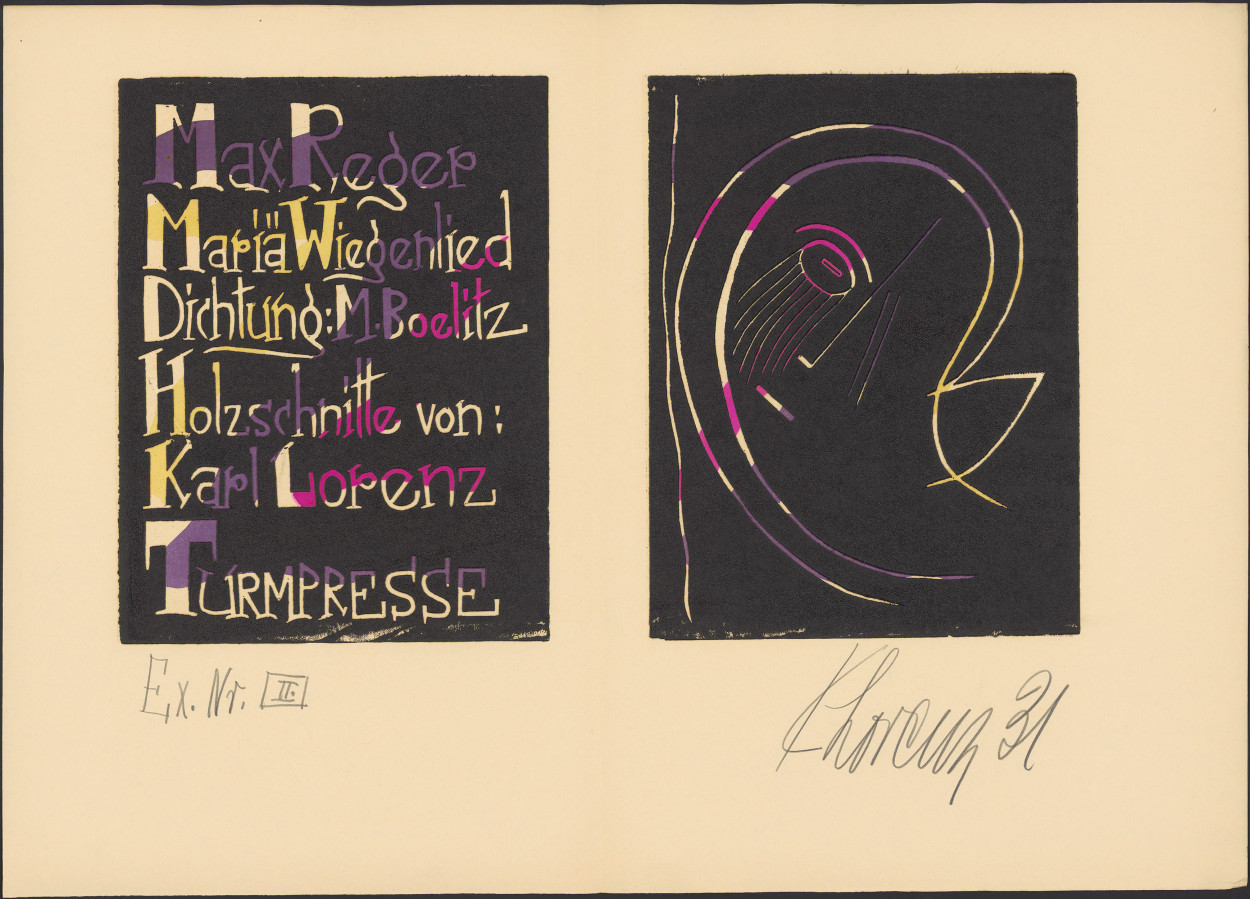 Max Reger
Mariä Wiegenlied
Dichtung: M. Boelitz
Holzschnitte von:
Karl Lorenz
TURMPRESSE
Ex. Nr. II.
KLorenz 31